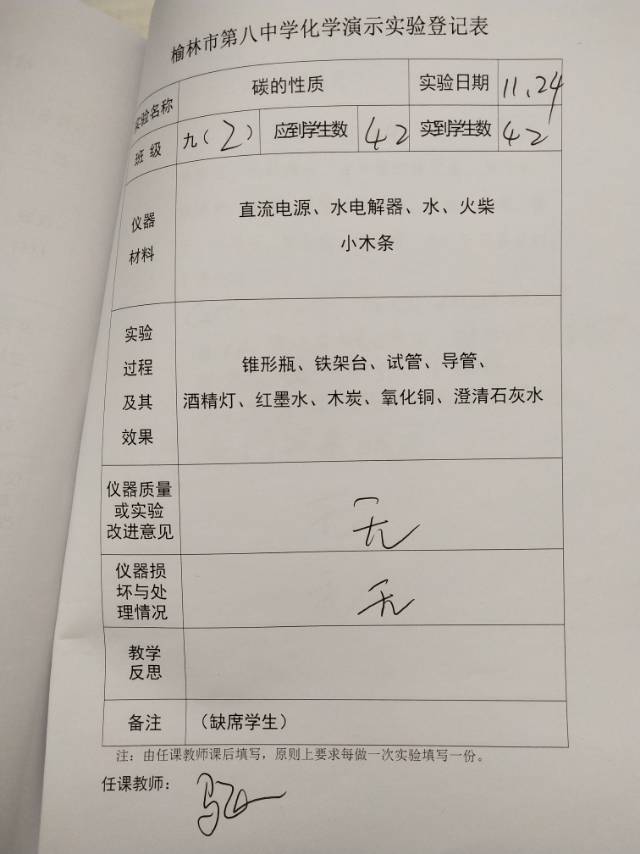 榆林市第八中学化学演示实验登记表
实验名称 碳的性质 实验日期 11.24
班 级 九（2） 应到学生数 42 实到学生数 42
仪器
材料
直流电源、水电解器、水、火柴
小木条
实验
过程
及其
效果
锥形瓶、铁架台、试管、导管、
酒精灯、红墨水、木炭、氧化铜、澄清石灰水
仪器质量
或实验
改进意见
无
仪器损
坏与处
理情况
无
教学
反思
备注 （缺席学生）
注：由任课教师课后填写，原则上要求每做一次实验填写一份。
任课教师：